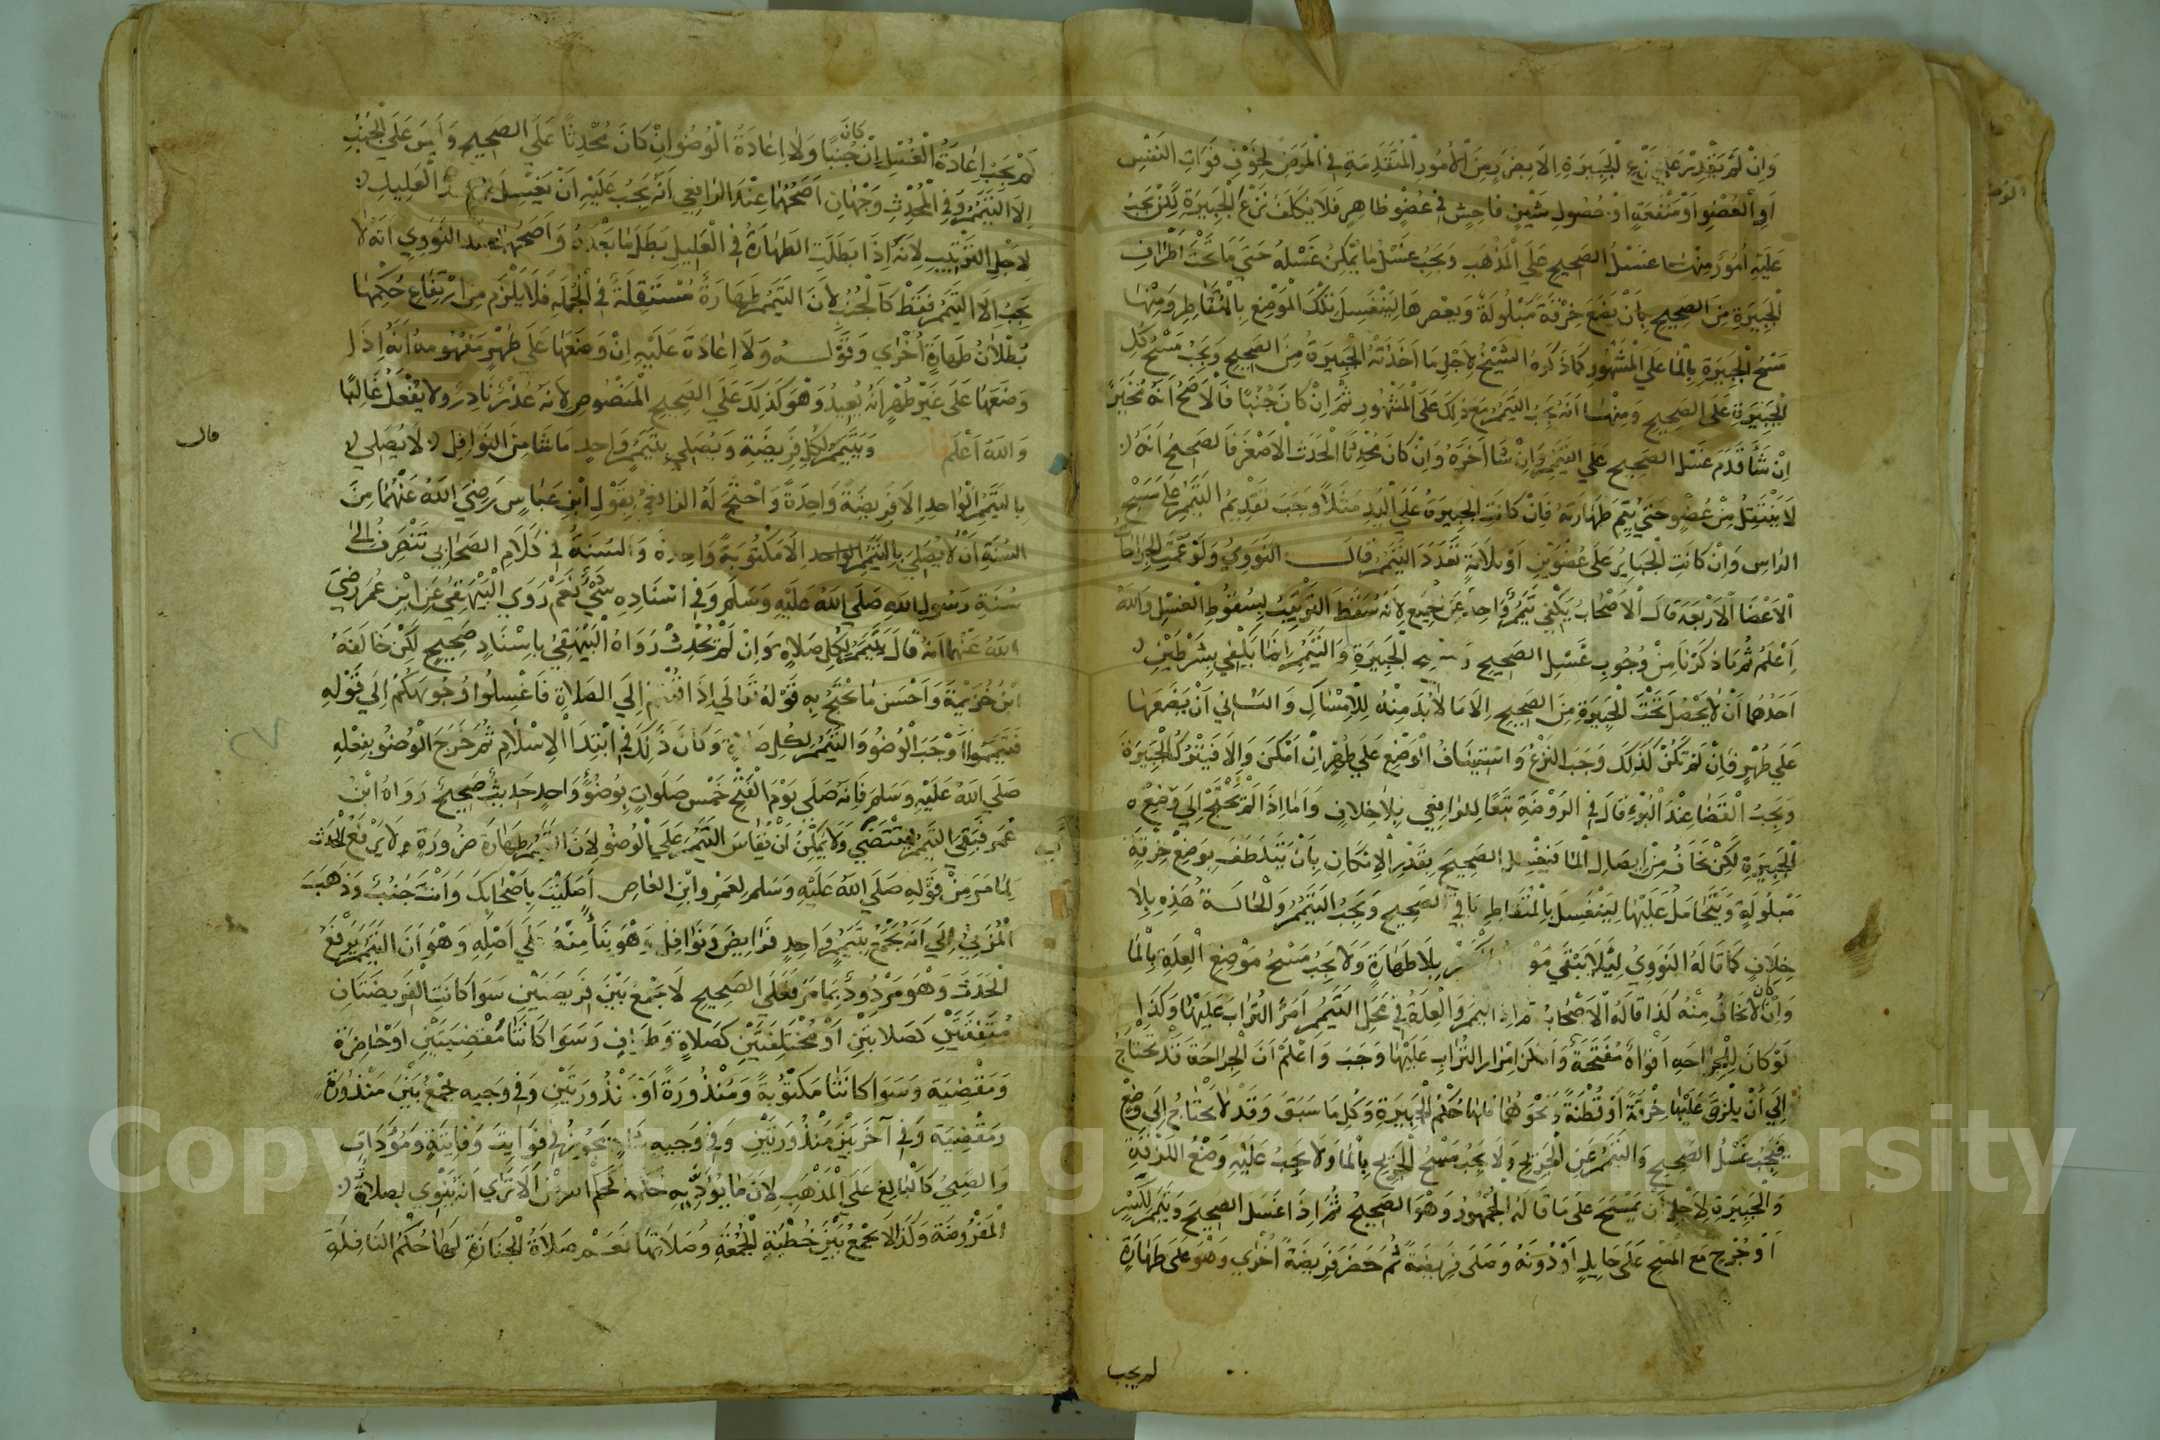 وَاِنْ لَمْ يَقْدِرْ عَلَي نَزْعِ الْجَبِيرَةِ اِلَّا بِضَرَرٍ مِنَ الْاُمُورِ الْمُتَقَدِّمَةِ فِي الْمَرَضِ لِخَوْفِ فَوَاتِ النَفْسِ
اَوِ الْعُضْوِ اَوْ مَنْفَعَتِهِ اَوْ حُصُولِ شَيْنٍ فَاحِشٍ فِي عُضْوٍ ظَاهِرٍ فَلَا يُكَلَّفُ نَزْعَ الْجَبِيرَةِ لَكِنْ يَجِبُ
عَلَيْهِ اُمُورٌ مِنْهَا غَسْلُ الصَحِيحِ عَلَي الْمَذْهَبِ وَيَجِبُ غَسْلُ مَا يُمْكِنُ غَسْلُهُ حَتَي مَا تَحْتَ اَطْرَافِ
الْجَبِيرَةِ مِنَ الصَحِيحِ بِاَنْ يَضَعَ خِرْقَةً مَبْلُولَةً وَيَعْصِرهَا لِيَنْغَسِلَ تِلْكَ الْمَوْضِعُ بِالْمُتَقَاطِرِ وَمِنْهَا
مَسْحُ الْجَبِيرَةِ بِالْمَا عَلَي الْمَشْهُورِ كَمَا ذَكَرَهُ الشَيْخُ لِاَجْلِ مَا اَخَذَتْهُ الْجَبِيرَةُ مِنَ الصَحِيحِ وَيَجِبُ مَسْحُ كُلِّ
الْجَبِيرَةِ عَلَي الصَحِيحِ وَمِنْهَا اَنَهُ يَجِبُ التَيَمُّمُ مَعَ ذَلِكَ عَلَي الْمَشْهُورِ ثُمَّ اِنْ كَانَ جُنُبًا فَالْاَصَحُّ اَنَهُ مُخَيَّرٌ
اِنْ شَا قَدَّمَ غَسْلَ الصَحِيحِ عَلَي التَيَمُّمِ وَاِنْ شَا اَخَّرَهُ وَاِنْ كَانَ مُحْدِثًا الْحَدَثَ الْاَصْغَرَ فَالصَحِيحُ اَنَهُ
لَا يَنْتَقِلُ مِنْ عُضْوٍ حَتَي يُتِمَّ طَهَارَتَهُ فَاِنْ كَانَتِ الْجَبِيرَةُ عَلَي الْيَدِ مَثَلًا وَجَبَ تَقْدِيمُ التَيَمُّمِ عَلَي مَسْحِ
الرَاسِ وَاِنْ كَانَتِ الْجَبَايِرُ عَلَي عُضْوَيْنِ اَوْ ثَلَاثَةٍ تَعَدَّدَ التَيَمُّمُ قَالَ النَوَوِيُّ وَلَوْ عَمَّتِ الْجِرَاحَاتُ
الْاَعْضَا الْاَرْبَعَةَ قَالَ الْاَصْحَابُ يَكْفِي تَيَمُّمٌ وَاحِدٌ عَنْ جَمِيعِ لِاَنَهُ سَقَطَ التَرْتِيبُ بِسُقُوطِ الْغَسْلِ وَاللهُ
اَعْلَمُ ثُمَّ مَا ذَكَرْنَا مِنْ وُجُوبِ غَسْلِ الصَحِيحِ الْجَبِيرَةِ وَالتَيَمُّمِ اِنَّمَا يَكْفِي بِشَرْطَيْنِ
اَحَدُهُمَا اَنْ لَا يَحْصُلَ تَحْتَ الْجَبِيرَةِ مِنَ الصَحِيحِ اِلَّا مَا لَا بُدَّ مِنْهُ لِلْاِمْسَاكِ وَالثَانِي اَنْ يَضَعَهَا
عَلَي طُهْرٍ فَاِنْ لَمْ تَكُنْ كَذَلِكَ وَجَبَ النَزْعُ وَاسْتِينَافُ الْوَضْعِ عَلَي طُهْرٍ اِنْ اَمْكَنَ وَاِلَّا فَيَتْرُكُ الْجَبِيرَةَ
وَيَجِبُ الْقَضَا عِنْدَ الْبُرْءِ قَالَ فِي الرَوْضَةِ تَبَعًا لِلرَافِعِي بِلَا خِلَافٍ وَاَمَا اِذَا لَمْ يَحْتَجْ اِلَي وَضْعِ
الْجَبِيرَةِ لَكِنْ يَخَافُ مِنْ اِيصَالِ الْمَا فَيَغْسِلُ الصَحِيحَ بِقَدْرِ الْاِمْكَانِ بِاَنْ يَتَلَطَّفَ بِوَضْعِ خِرْقَةٍ
مَبْلُولَةٍ وَيَتَحَامَلُ عَلَيْهَا لِيَنْغَسِلَ بِالْمُتَقَاطِرِ بَاقِي الصَحِيحِ وَيَجِبُ التَيَمُّمُ وَالْحَالَةُ هَذِهِ بِلَا
خِلَافٍ كَمَا قَالَهُ النَوَوِي لِيَلَّا يَبْقَي بِلَا طَهَارَةٍ وَلَا يَجِبُ مَسْحُ مَوْضِعِ الْعِلَّةِ بِالْمَا
وَاِنْ كَانَ لَا يَخَافُ مِنْهُ كَذَا قَالَهُ الْاَصْحَابُ وَالْعِلَّةُ فِي مَحَلِّ التَيَمُّمِ اَمَرَّ التُرَابَ عَلَيْهَا وَكَذَا
لَوْ كَانَ لِلْجِرَاحَةِ اَفْوَاهٌ مُفَتَّحَةٌ وَاَمْكَنَ اِمْرَارُ التُرَابِ عَلَيْهَا وَجَبَ وَاعْلَمْ اَنَّ الْجِرَاحَةَ قَدْ تَحْتَاجُ
اِلَي اَنْ يُلْزَقَ عَلَيْهَا خِرْقَةً اَوْ قُطْنَةً وَنَحْوَهُمَا فَلَهَا حُكْمُ الْجَبِيرَةِ وَكُلِّ مَا سَبَقَ وَقَدْ لَا يَحْتَاجُ اِلَي وَضْعٍ
فَيَجِبُ غَسْلُ الصَحِيحِ وَالتَيَمُّمُ عَنِ الْجَرِيحِ وَلَا يَجِبُ مَسْحُ الْجَرِيحِ بِالْمَا وَلَا يَجِبُ عَلَيْهِ وَضْعُ اللَزْقَةِ
وَالْجَبِيرَةِ لِاَجْلِ اَنْ يَمْسَحَ عَلَي مَا قَالَهُ الْجُمْهُورُ وَهُوَ الصَحِيحُ ثُمَّ اِذَا غَسَلَ الصَحِيحَ وَتَيَمَّمَ لِكَسْرٍ
اَوْ جُرْحٍ مَعَ الْمَسْحِ عَلَي حَايِلٍ اَوْ دُونَهُ وَصَلَي فَرِيضَةً ثُمَّ حَضَرَ فَرِيضَةٌ اُخْرَي وَهُوَ عَلَي طَهَارَةٍ
لم يجب
لَمْ يَجِبْ اِعَادَةُ الْغُسْلِ اِنْ كَانَ جُنُبًا وَلَا اِعَادَةُ الْوُضُو اِنْ كَانَ مُحْدِثًا عَلَي الصَحِيحِ وَلَيْسَ عَلَي الْجُنُبِ
اِلَّا التَيَمُّمُ وَفِي الْمُحْدِثِ وَجْهَانِ اَصَحُّهُمَا عِنْدَ الرَافِعِي اَنَهُ يَجِبُ عَلَيْهِ اَنْ يَغْسِلَ الْعَلِيلِ
لِاَجْلِ التَرْتِيبِ لِاَنَهُ اِذَا بَطَلَتِ الطَهَارَةُ فِي الْعَلِيلِ بَطَلَ مَا بَعْدَهُ وَاَصَحُّهُمَا عِنْدَ النَوَوِي اَنَهُ لَا
يَجِبُ اِلَّا التَيَمُّمُ فَقَطْ كَالْجُنُبِ لِاَنَّ التَيَمُّمَ طَهَارَةٌ مُسْتَقِلَّةٌ فِي الْجُمْلَةِ فَلَا يَلْزَمُ مِنِ ارْتِفَاعِ حُكْمِهَا
بُطْلَانُ طَهَارَةٍ اُخْرَي وَقَوْلُهُ وَلَا اِعَادَةَ عَلَيْهِ اِنْ وَضَعَهَا عَلَي طُهْرٍ مَفْهُومُهُ اَنَهُ اِذَا
وَضَعَهَا عَلَي غَيْرِ طُهْرٍ اَنَهُ يُعِيدُ وَهُوَ كَذَلِكَ عَلَي الصَحِيحِ الْمَنْصُوصِ لِاَنَهُ عُذْرٌ نَادِرٌ وَلَا يُفْعَلُ غَالِبًا
وَاللهُ اَعْلَمُ وَيَتَيَمَّمُ لِكُلِّ فَرِيضَةٍ وَيُصَلِّي بِتَيَمُّمٍ وَاحِدٍ مَا شَا مِنَ النَوَافِلِ لَا يُصَلِّي
بِالتَيَمُّمِ الْوَاحِدِ اِلَّا فَرِيضَةً وَاحِدَةً وَاحْتَجَّ لَهُ الرَافِعِيُّ بِقَوْلِ ابْنِ عَبَّاسٍ رَضِيَ اللهُ عَنْهُمَا مِنَ
السُنَّةِ اَنْ لَا يُصَلَّي بِالتَيَمُّمِ الْوَاحِدِ اِلَّا مَكْتُوبَةً وَاحِدَةً وَالسُنَّةُ فِي كَلَامِ الصَحَابِي تَنْصَرِفُ اِلَي
سُنَّةِ رَسُولِ اللهِ صَلَي اللهُ عَلَيْهِ وَسَلَّمَ وَفِي اِسْنَادِهِ شَيْءٌ نَعَمْ رَوَي الْبَيْهَقِيُّ عَنِ ابْنِ عُمَرَ رَضِيَ
اللهُ عَنْهُمَا اَنَهُ قَالَ يَتَيَمَّمُ لِكُلِّ صَلَاةٍ وَاِنْ لَمْ يُحْدِثْ رَوَاهُ الْبَيْهَقِي بِاِسْنَادٍ صَحِيحٍ لَكِنْ خَالَفَهُ
ابْنُ خُزَيْمَةَ وَاَحْسَنَ مَا يُحْتَجُّ بِهِ قَوْلُهُ تَعَالَي اِذَا قُمْتُمْ اِلَي الصَلَاةِ فَاغْسِلُوا وُجُوهَكُمْ اِلَي قَوْلِهِ
فَتَيَمَّمُوا اَوْجَبَ الْوُضُوَ وَالتَيَمُّمَ لِكُلِّ صَلَاةٍ وَكَانَ ذَلِكَ فِي ابْتِدَا الْاِسْلَامِ ثُمَّ خَرَجَ الْوُضُو بِفِعْلِهِ
صَلَي اللهُ عَلَيْهِ وَسَلَّمَ فَاِنَهُ صَلَي يَوْمَ الْفَتْحِ خَمْسَ صَلَوَاتٍ بِوُضُوءٍ وَاحِدٍ حَدِيثٌ صَحِيحٌ رَوَاهُ ابْنُ
عُمَرَ فَبَقِيَ التَيَمُّمُ بِمُقْتَضَي وَلَا يُمْكِنُ اَنْ يُقَاسَ التَيَمُّمُ عَلَي الْوُضُو لِاَنَّ التَيَمُّمَ طَهَارَةُ ضَرُورَةٍ وَلَا يَرْفَعُ الْحَدَثَ
لِمَا مَرَّ مِنْ قَوْلِهِ صَلَي اللهُ عَلَيْهِ وَسَلَّمَ لِعَمْرِو ابْنِ الْعَاصِ اَصَلَيْتَ بِاَصْحَابِكَ وَاَنْتَ جُنُبٌ وَذَهَبَ
الْمُزَنِيُّ اِلَي اَنَهُ يُجْمَعُ بِتَيَمُّمٍ وَاحِدٍ فَرَايِضَ وَنَوَافِلَ وَهُوَ بِنَاءٌ مِنْهُ عَلَي اَصْلِهِ وَهُوَ اَنَّ التَيَمُّمَ يَرْفَعُ
الْحَدَثَ وَهُوَ مَرْدُودٌ بِمَا مَرَّ فَعَلَي الصَحِيحِ لَا يَجْمَعُ بَيْنَ فَرِيضَتَيْنِ سَوَا كَانَتِ الْفَرِيضَتَانِ
مُتَّفِقَتَيْنِ كَصَلَاتَيْنِ اَوْ مُخْتَلِفَتَيْنِ كَصَلَاةٍ وَطَوَافٍ وَسَوَا كَانَتَا مَقْضِيَتَيْنِ اَوْ حَاضِرَةً
وَمَقْضِيَة وَسَوَا كَانَتَا مَكْتُوبَةً وَمَنْذُورَةً اَوْ مَنْذُورَتَيْنِ وَفِي وَجِيهٍ يَجْمَعُ بَيْنَ مَنْذُورَةٍ
وَمَقْضِيَة وَفِي آخَرَ بَيْنَ مَنْذُورَتَيْنِ وَفِي وَجِيهٍ يَجُوزُ فِي فَوَايِتَ وَفَايِتَةٍ وَمُؤَدَّاةٍ
وَالصَبِيُّ كَالْبَالِغِ عَلَي الْمَذْهَبِ لِاَنَّ مَا يُؤَدِّيهِ اَلَا تَرَي اَنَهُ يَنْوِي بِصَلَاةِ
الْمَفْرُوضَةِ وَكَذَا لَا يَجْمَعُ بَيْنَ خُطْبَةِ الْجُمُعَةِ وَصَلَاتِهَا نَعَمْ صَلَاةُ الْجَنَازَةِ لَهَا حُكْمُ النَافِلَةِ
قال
Copyright © King Saud University